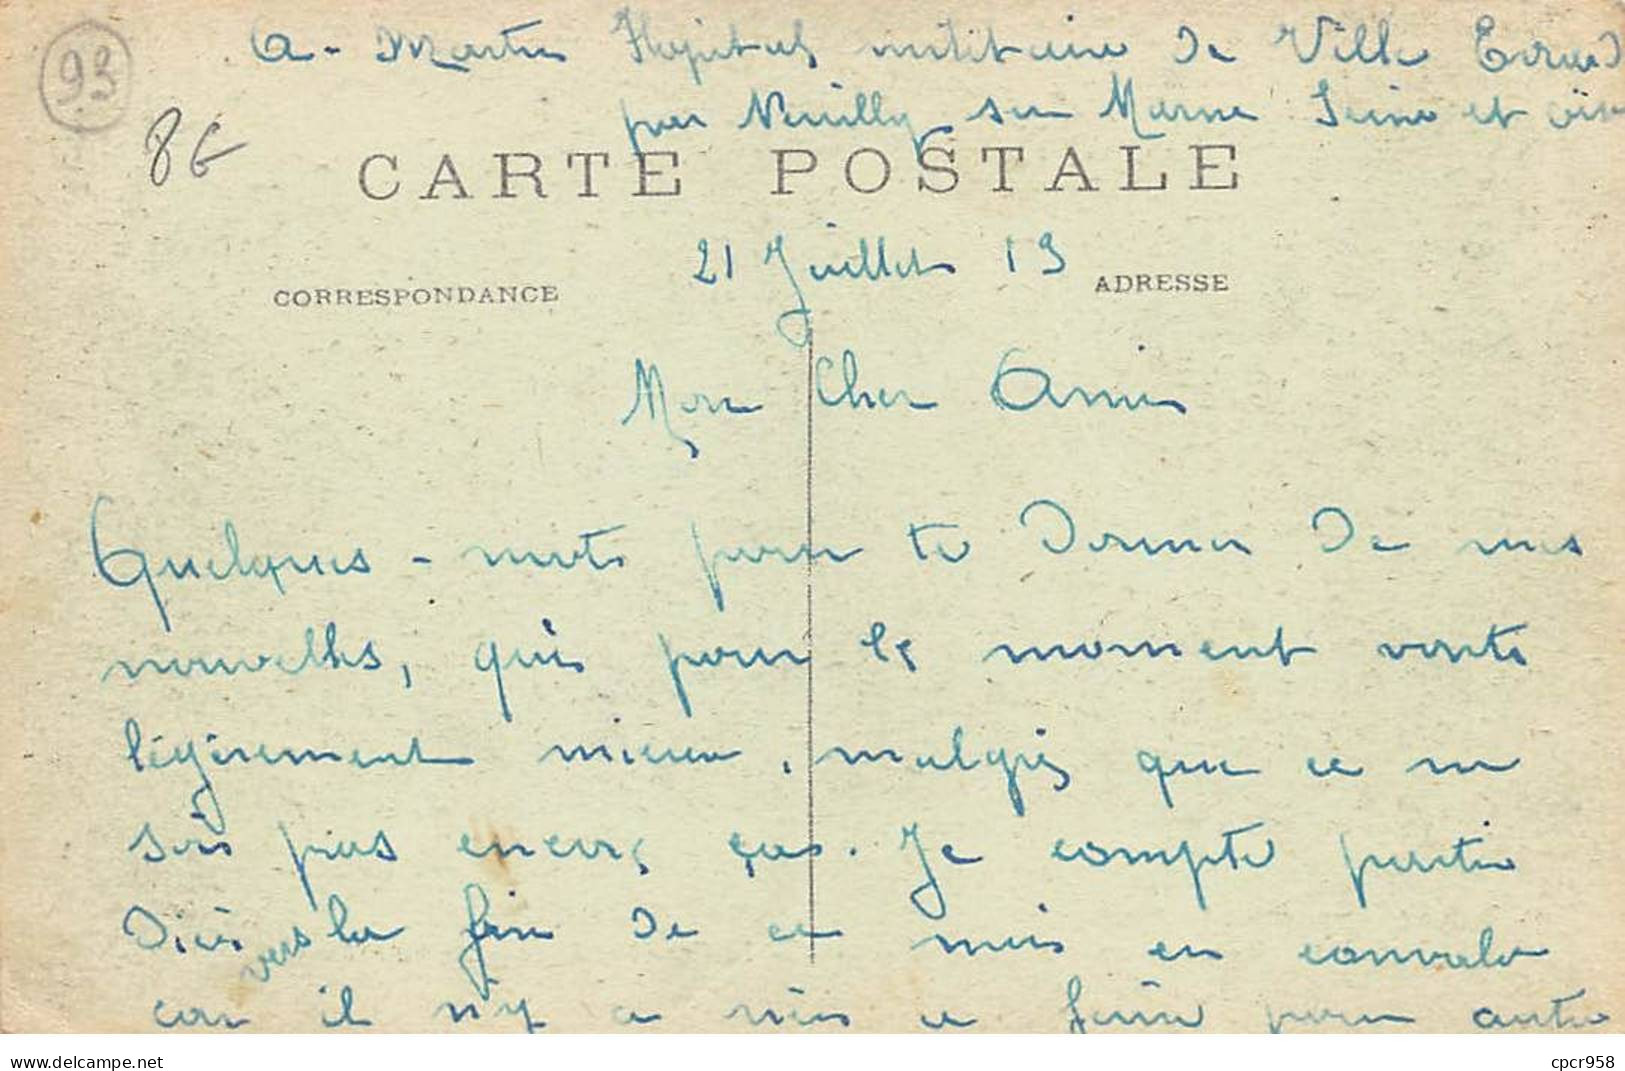 93
8€
A - Martin Hopital militaire de Ville Evrard
par Neuilly sur Marne Seine et oise
CARTE POSTALE
CORRESPONDANCE
21 Juillet 19
ADRESSE
Mon Cher Ami
Quelques - mots pour te donner de mes
nouvelles, qui pour le moment vonts
légèrement mieux, malgrés que ce ne
sois pas encore ças. Je compte partir
d'ici vers la fin de ce mois en convalo
car il n'y a rien a faire pour autre
delcampe.net
cpcr958